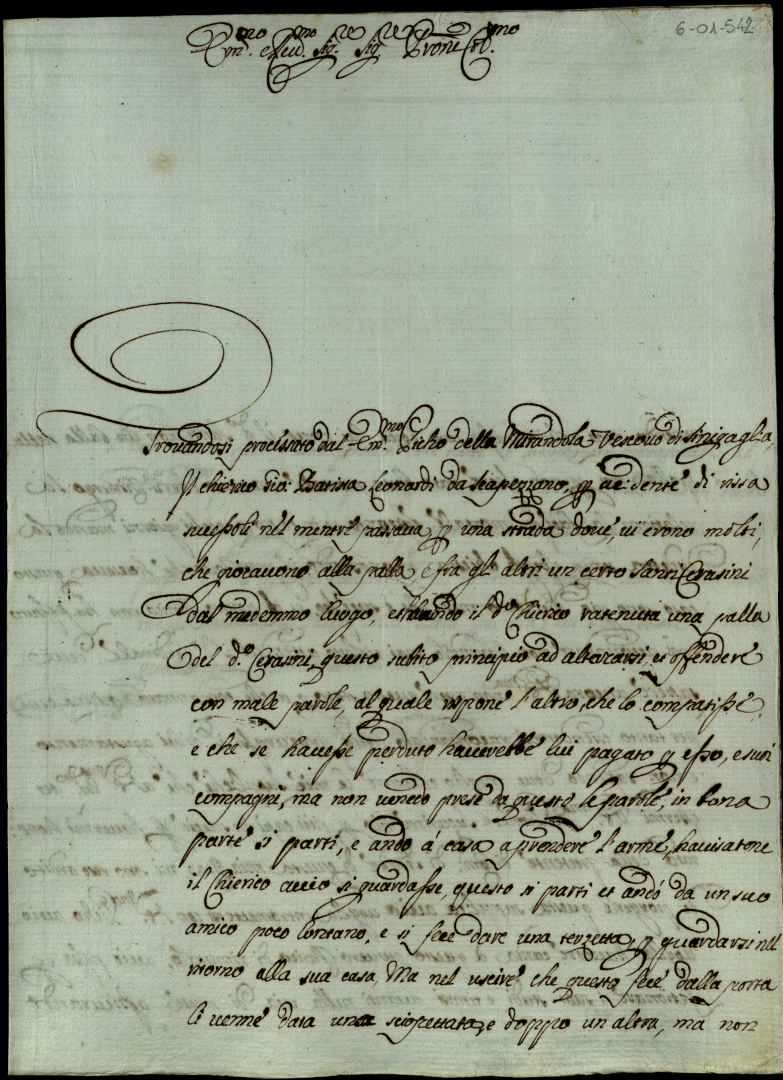 6-01-542
Em.mo e Rev.mo Sig.re Sig.re Prone Col.mo
Trovandosi processato dal Em.mo Picho della Mirandola Vescovo di Sinigaglia,
Il chierico Gio: Batista Leonardi da Scapezzano, p accidente di rissa
successoli nel mentre passava, p una strada dove, vi erono molti,
che giocavono alla palla, e fra gli altri un certo Santi Cerasini
dal medemmo luogo, et havendo il d.o Chierico ratenuta una palla
del d.o Cerasini, questo subito principiò ad altarzarsi, et offendere
con male parole, al quale rispone l'altro, che lo compatisse,
e che se havesse perduto haverebbe lui pagato p esso, e suoi
compagni, ma non venedo prese da questo le parole, in bona
parte si partì, e andò á casa a prendere l'arme, havisatone
il Chierico acciò si guardasse, questo si partì et andó da un suo
amico poco lontano, e si fece dare una terzetta, p guardarsi nell
ritorno alla sua casa, Ma nel uscire che questa fece dalla porta
li venne data una sciopettata, e doppo un altra, ma non